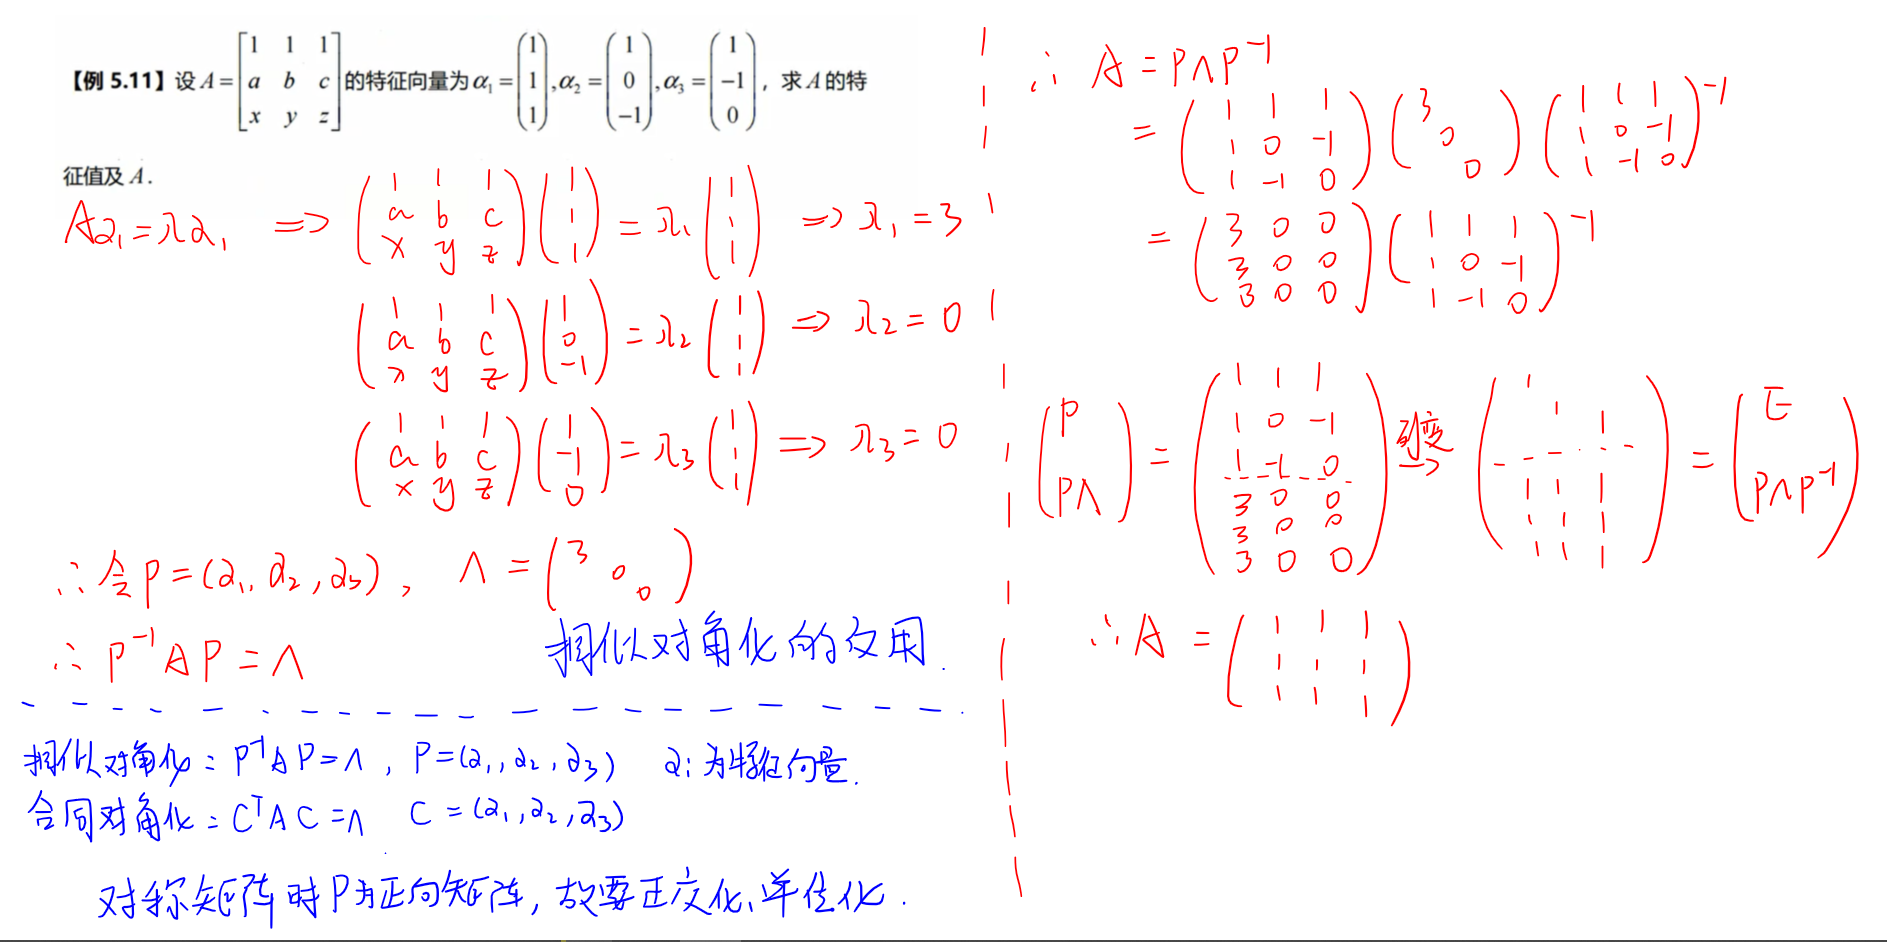 【例 5.11】设 A = [1 1 1; a b c; x y z] 的特征向量为 α₁ = (1 1 1), α₂ = (1 0 −1), α₃ = (1 −1 0)，求 A 的特
征值及 A.
Aα₁ = λα₁ ⇒ (1 1 1; a b c; x y z)(1 1 1) = λ₁(1 1 1) ⇒ λ₁ = 3
(1 1 1; a b c; x y z)(1 0 −1) = λ₂(1 1 1) ⇒ λ₂ = 0
(1 1 1; a b c; x y z)(1 −1 0) = λ₃(1 1 1) ⇒ λ₃ = 0
∴ 令 P = (α₁, α₂, α₃), Λ = (3 0 0)
∴ P⁻¹AP = Λ
相似对角化的反用.
相似对角化: P⁻¹AP = Λ, P = (α₁, α₂, α₃) αᵢ为特征向量.
合同对角化: CᵀAC = Λ C = (α₁, α₂, α₃)
对称矩阵时P为正向矩阵, 故要正交化、单位化.
∴ A = PΛP⁻¹
= (1 1 1; 1 0 −1; 1 −1 0)(3 0 0)(1 1 1; 1 0 −1; 1 −1 0)⁻¹
= (3 0 0; 3 0 0; 3 0 0)(1 1 1; 1 0 −1; 1 −1 0)⁻¹
(P; PΛ) = (1 1 1; 1 0 −1; 1 −1 0; 3 0 0; 3 0 0; 3 0 0) 列变→ (1; 1; 1; 1 1 1; 1 1 1; 1 1 1) = (E; PΛP⁻¹)
∴ A = (1 1 1; 1 1 1; 1 1 1)